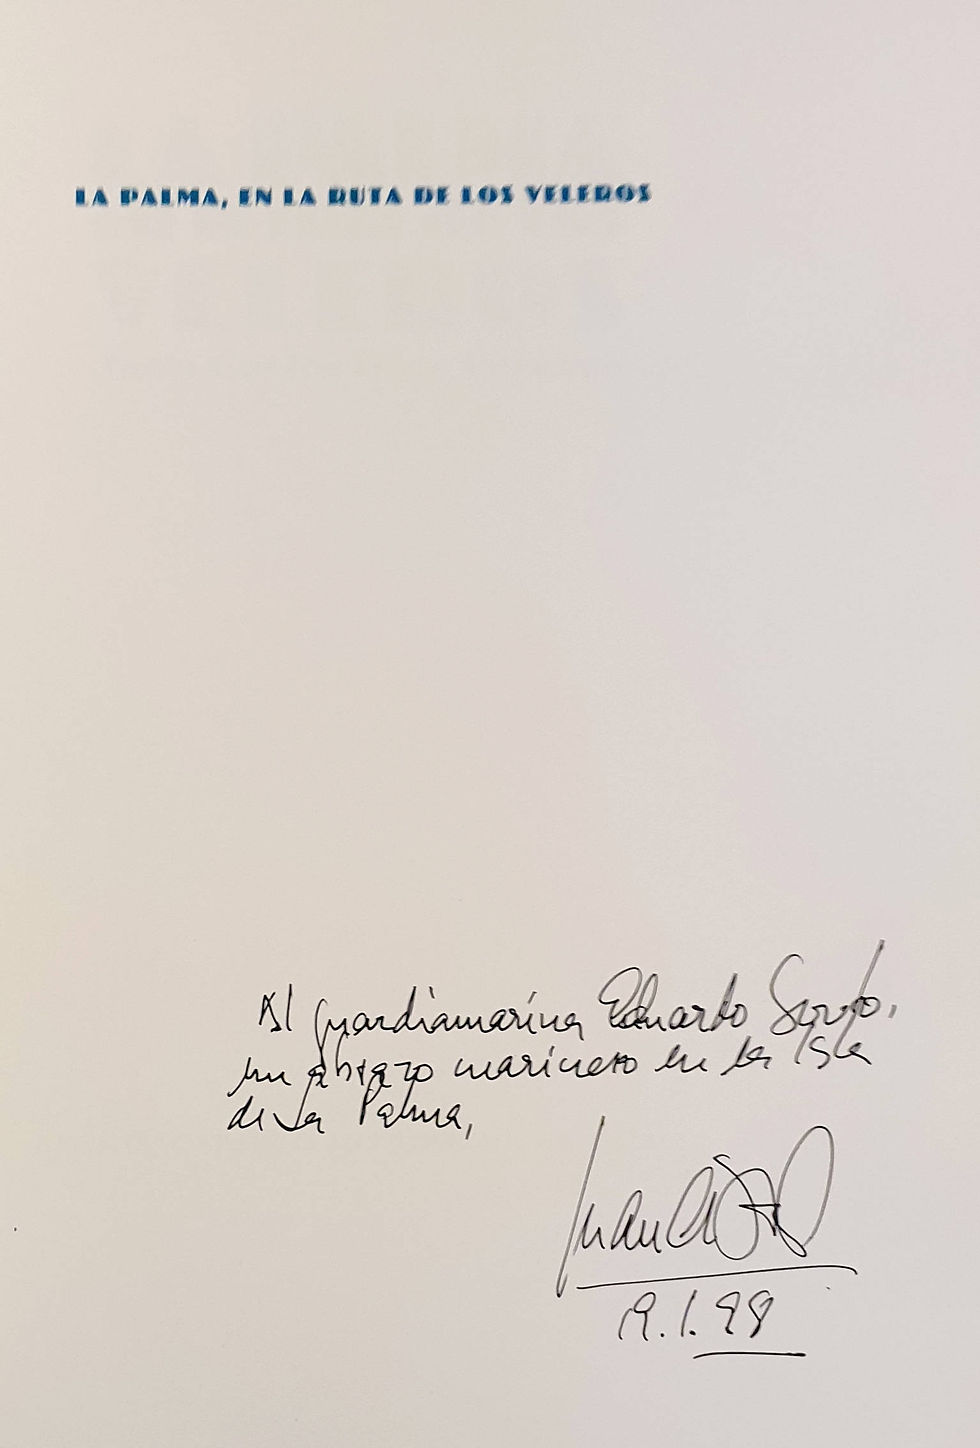 LA PALMA, EN LA RUTA DE LOS VELEROS
Al guardiamarina Eduardo
un abrazo marinero en la Isla
de La Palma,
Juan
19.1.98